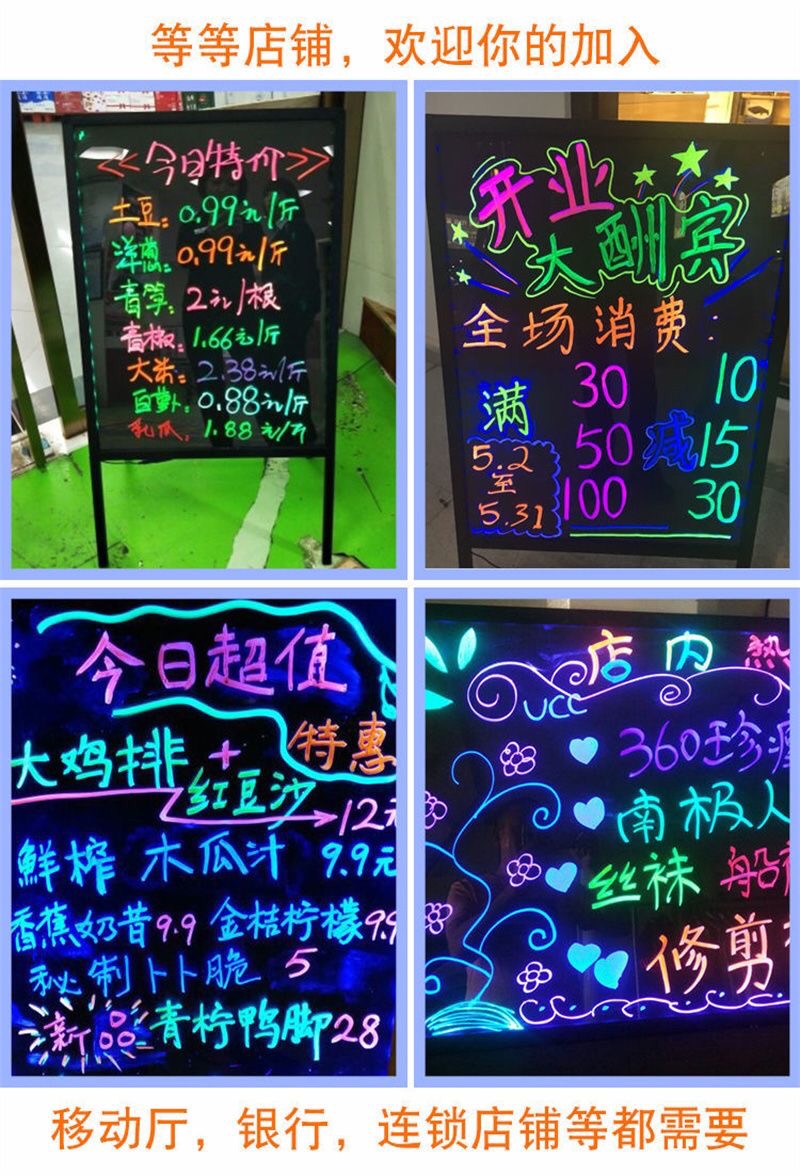 等等店铺，欢迎你的加入
<<今日特价>>
土豆：0.99元/斤
洋葱：0.99元/斤
青笋：2元/根
青椒：1.66元/斤
大米：2.38元/斤
白萝卜：0.88元/斤
乳瓜：1.88元/斤
开业
大酬宾
全场消费：
满 30 减 10
50 15
100 30
5.2
至
5.31
今日超值
特惠
大鸡排+
红豆沙
12元
鮮榨 木瓜汁 9.9元
香蕉奶昔9.9 金桔柠檬9.9
秘制卜卜脆 5
新品 青柠鸭脚28
店内热
UCC
360珍
南极人
丝袜 船
修剪
移动厅，银行，连锁店铺等都需要